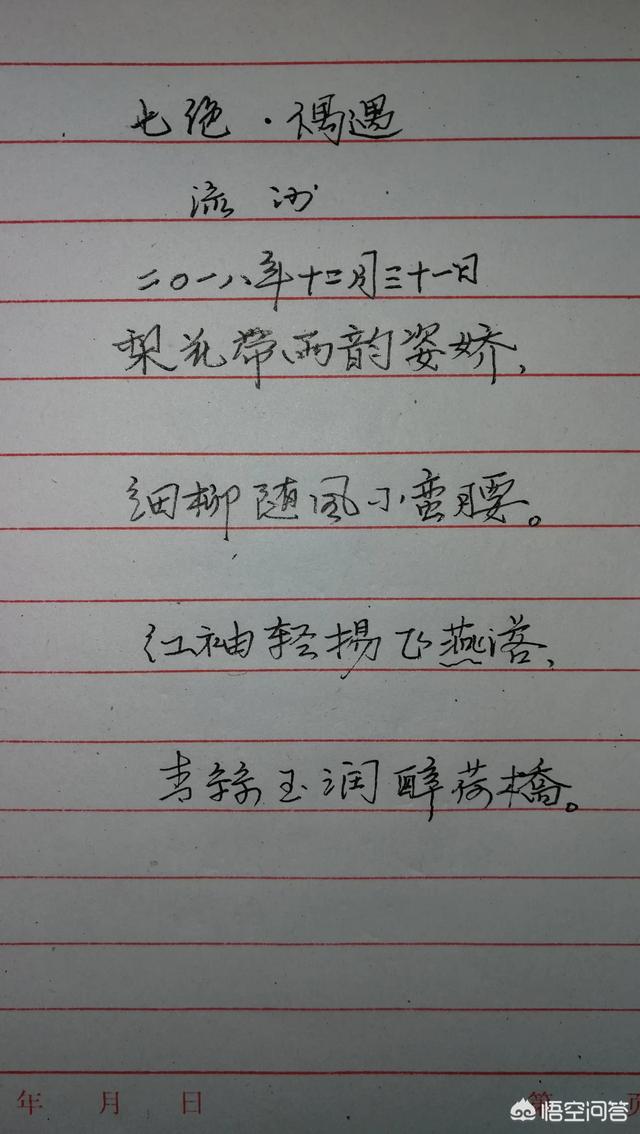 七绝·偶遇
流洲
二〇一八年十二月三十一日
梨花带雨韵姿娇,
细柳随风小蛮腰。
红袖轻扬飞燕落,
青丝玉润醉荷橋。
年 月 日 第 页
悟空问答